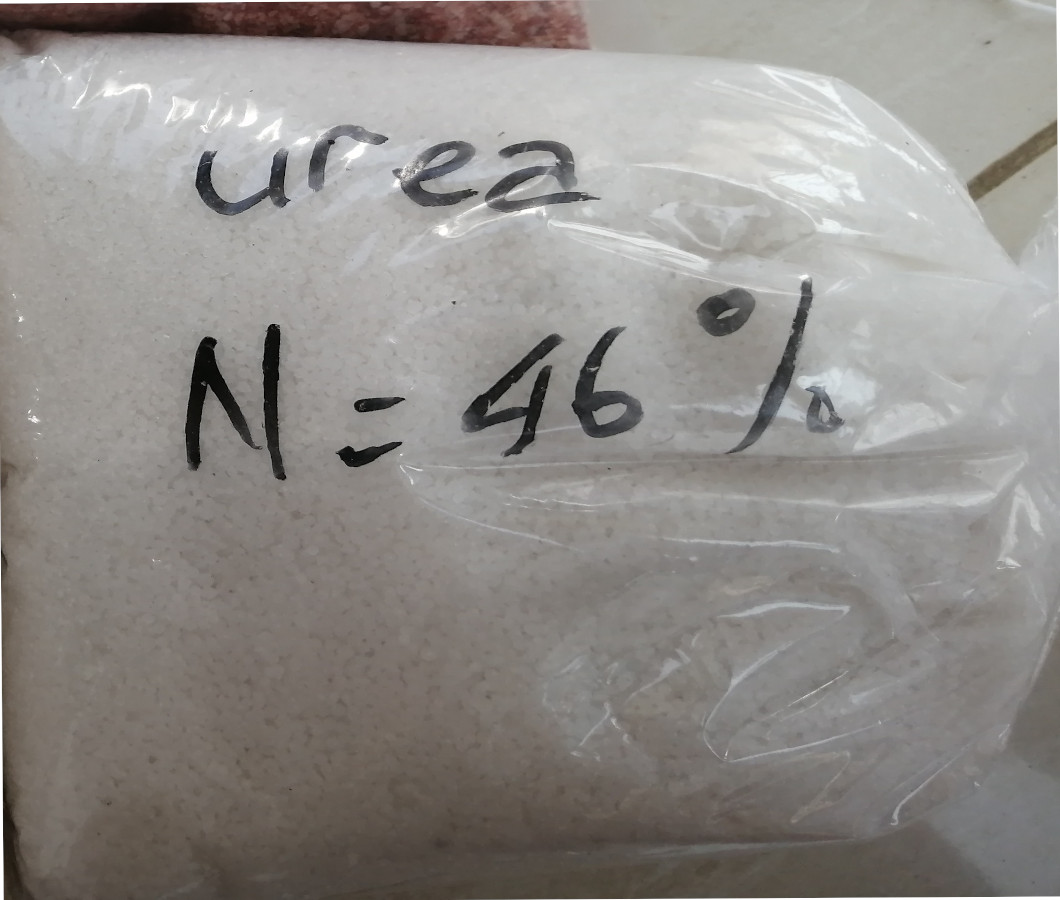 urea
N = 46 %